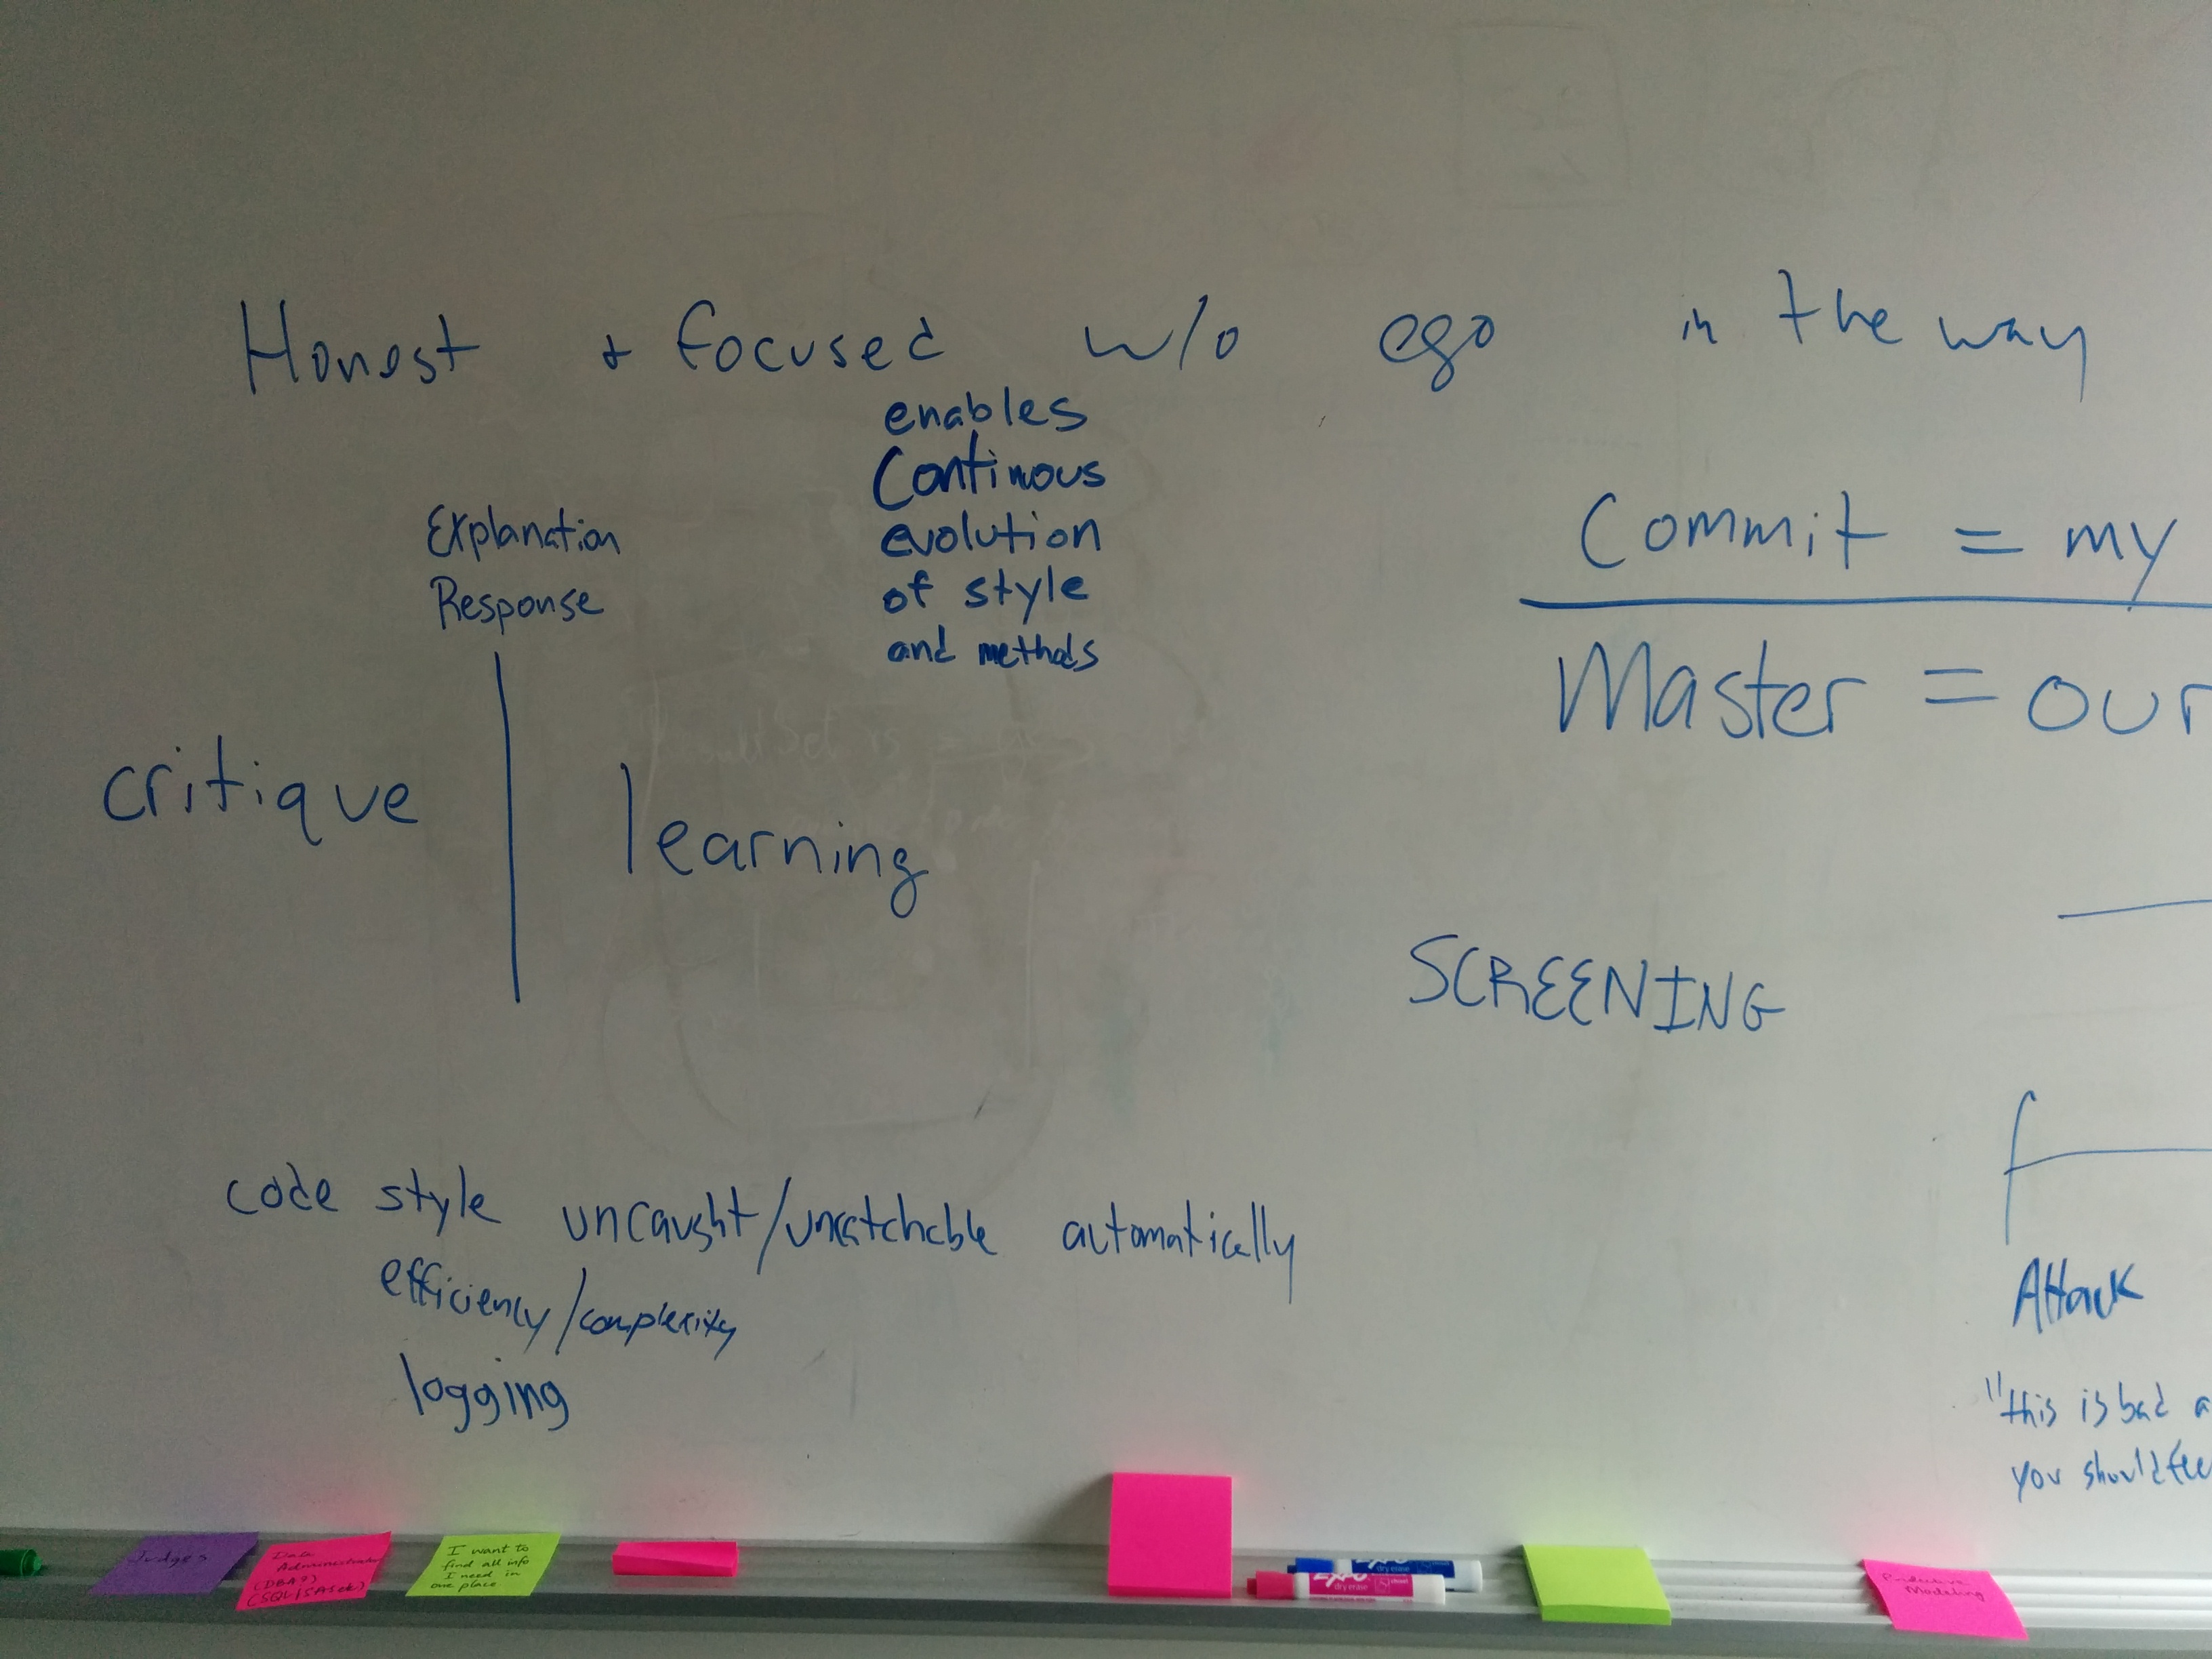 Honest + focused w/o ego in the way
enables
Continous
evolution
of style
and methods
Explanation
Response
critique
learning
Commit = my
Master = our
SCREENING
code style uncaught/uncatchable automatically
efficiency/complexity
logging
Attack
"this is bad a
you should fee
Judges
Data
(DBA?)
I want to
find all info
I need in
one place
EXPO
dry erase
EXPO
dry erase
Modeling